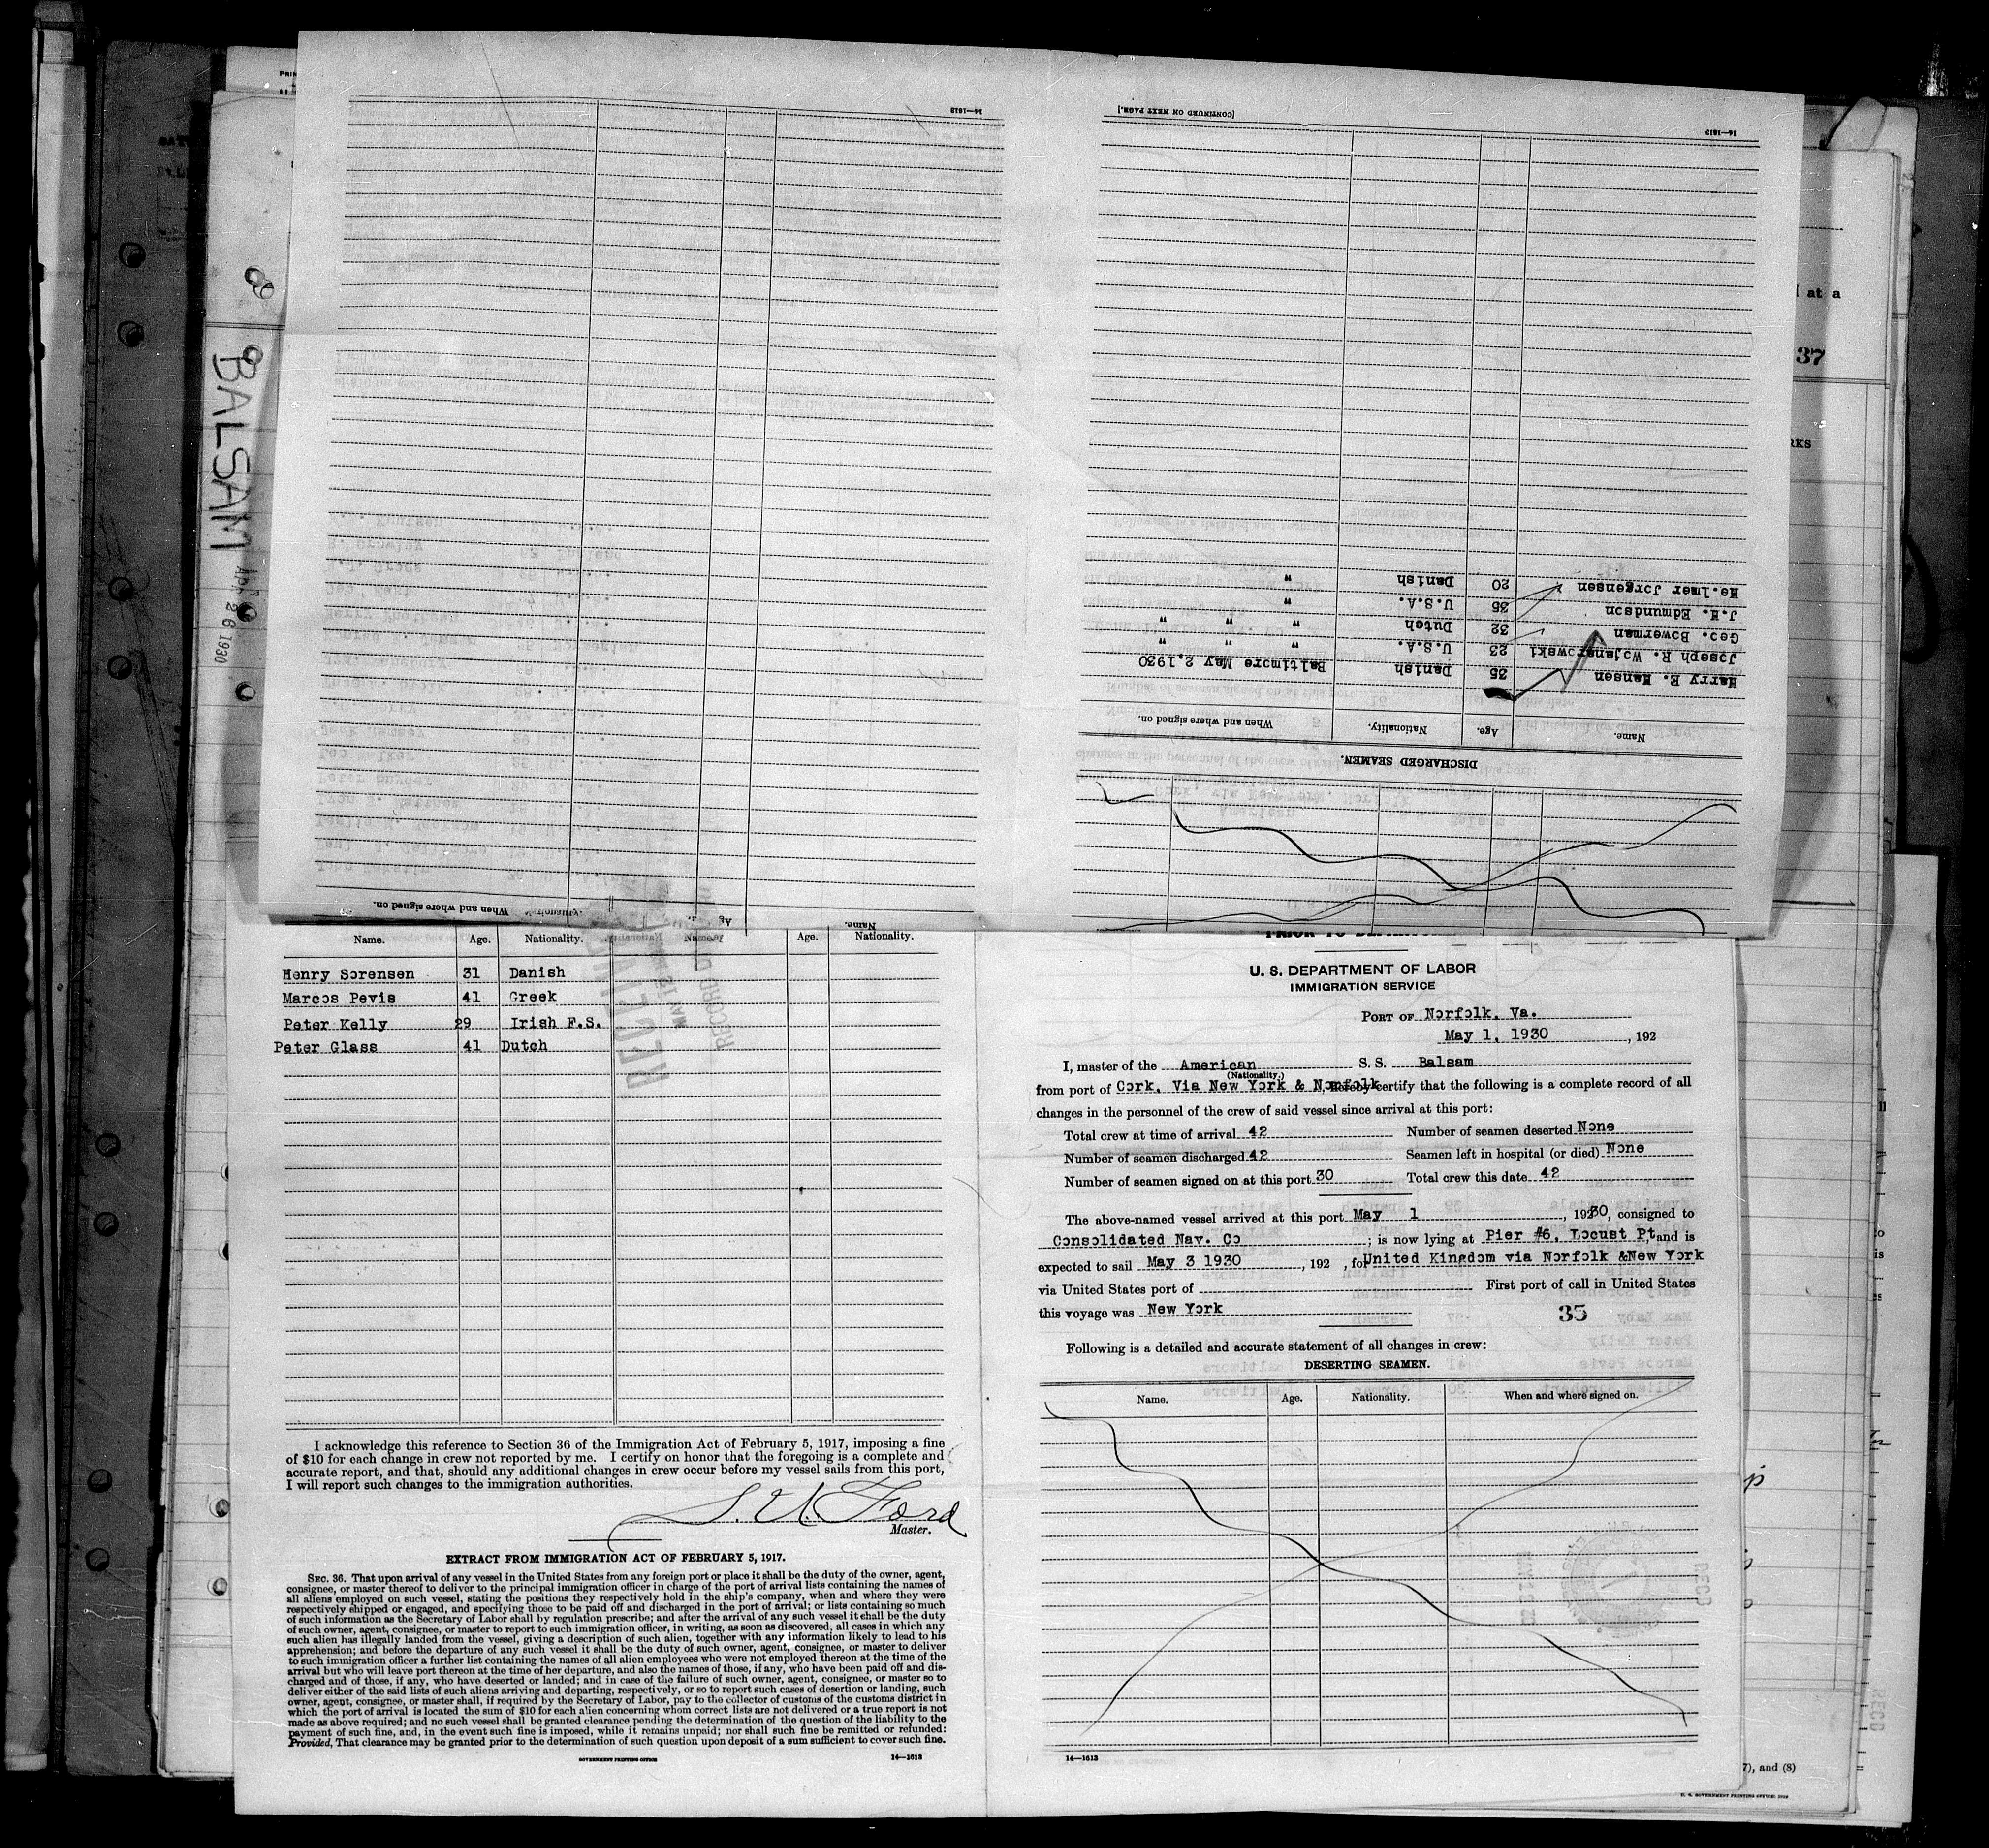 BALSAM
Apr 26 1930
14—1613
[CONTINUED ON NEXT PAGE.]
14—1613
DISCHARGED SEAMEN.
Name. Age. Nationality. When and where signed on.
Harry E. Hansen 35 Danish Baltimore May 2,1930
Joseph R. Wojanrowski 23 U.S.A. " " "
Geo. Bowerman 32 Dutch " " "
J.H. Edmundson 35 U.S.A. "
He.lmer Jorgensen 20 Danish "
Name. When and where signed on.
at a
37
RKS
Name. Age. Nationality. Name. Age. Nationality.
Henry Sorensen 31 Danish
Marcos Pevis 41 Greek
Peter Kelly 29 Irish F.S.
Peter Glass 41 Dutch
I acknowledge this reference to Section 36 of the Immigration Act of February 5, 1917, imposing a fine
of $10 for each change in crew not reported by me. I certify on honor that the foregoing is a complete and
accurate report, and that, should any additional changes in crew occur before my vessel sails from this port,
I will report such changes to the immigration authorities.
Ford
Master.
EXTRACT FROM IMMIGRATION ACT OF FEBRUARY 5, 1917.
SEC. 36. That upon arrival of any vessel in the United States from any foreign port or place it shall be the duty of the owner, agent,
consignee, or master thereof to deliver to the principal immigration officer in charge of the port of arrival lists containing the names of
all aliens employed on such vessel, stating the positions they respectively hold in the ship's company, when and where they were
respectively shipped or engaged, and specifying those to be paid off and discharged in the port of arrival; or lists containing so much
of such information as the Secretary of Labor shall by regulation prescribe; and after the arrival of any such vessel it shall be the duty
of such owner, agent, consignee, or master to report to such immigration officer, in writing, as soon as discovered, all cases in which any
such alien has illegally landed from the vessel, giving a description of such alien, together with any information likely to lead to his
apprehension; and before the departure of any such vessel it shall be the duty of such owner, agent, consignee, or master to deliver
to such immigration officer a further list containing the names of all alien employees who were not employed thereon at the time of the
arrival but who will leave port thereon at the time of her departure, and also the names of those, if any, who have been paid off and dis-
charged and of those, if any, who have deserted or landed; and in case of the failure of such owner, agent, consignee, or master so to
deliver either of the said lists of such aliens arriving and departing, respectively, or so to report such cases of desertion or landing, such
owner, agent, consignee, or master shall, if required by the Secretary of Labor, pay to the collector of customs of the customs district in
which the port of arrival is located the sum of $10 for each alien concerning whom correct lists are not delivered or a true report is not
made as above required; and no such vessel shall be granted clearance pending the determination of the question of the liability to the
payment of such fine, and, in the event such fine is imposed, while it remains unpaid; nor shall such fine be remitted or refunded:
Provided, That clearance may be granted prior to the determination of such question upon deposit of a sum sufficient to cover such fine.
GOVERNMENT PRINTING OFFICE 14—1613
U. S. DEPARTMENT OF LABOR
IMMIGRATION SERVICE
PORT OF Norfolk, Va.
May 1, 1930, 192
I, master of the American S. S. Balsam
(Nationality.)
from port of Cork, Via New York & Norfolk, hereby certify that the following is a complete record of all
changes in the personnel of the crew of said vessel since arrival at this port:
Total crew at time of arrival 42 Number of seamen deserted None
Number of seamen discharged 42 Seamen left in hospital (or died) None
Number of seamen signed on at this port 30 Total crew this date 42
The above-named vessel arrived at this port May 1, 19230, consigned to
Consolidated Nav. Co; is now lying at Pier #6, Locust Pt, and is
expected to sail May 3 1930, 192 , for United Kingdom via Norfolk &New York
via United States port of First port of call in United States
this voyage was New York 35
Following is a detailed and accurate statement of all changes in crew:
DESERTING SEAMEN.
Name. Age. Nationality. When and where signed on.
14—1613
7), and (8)
U. S. GOVERNMENT PRINTING OFFICE